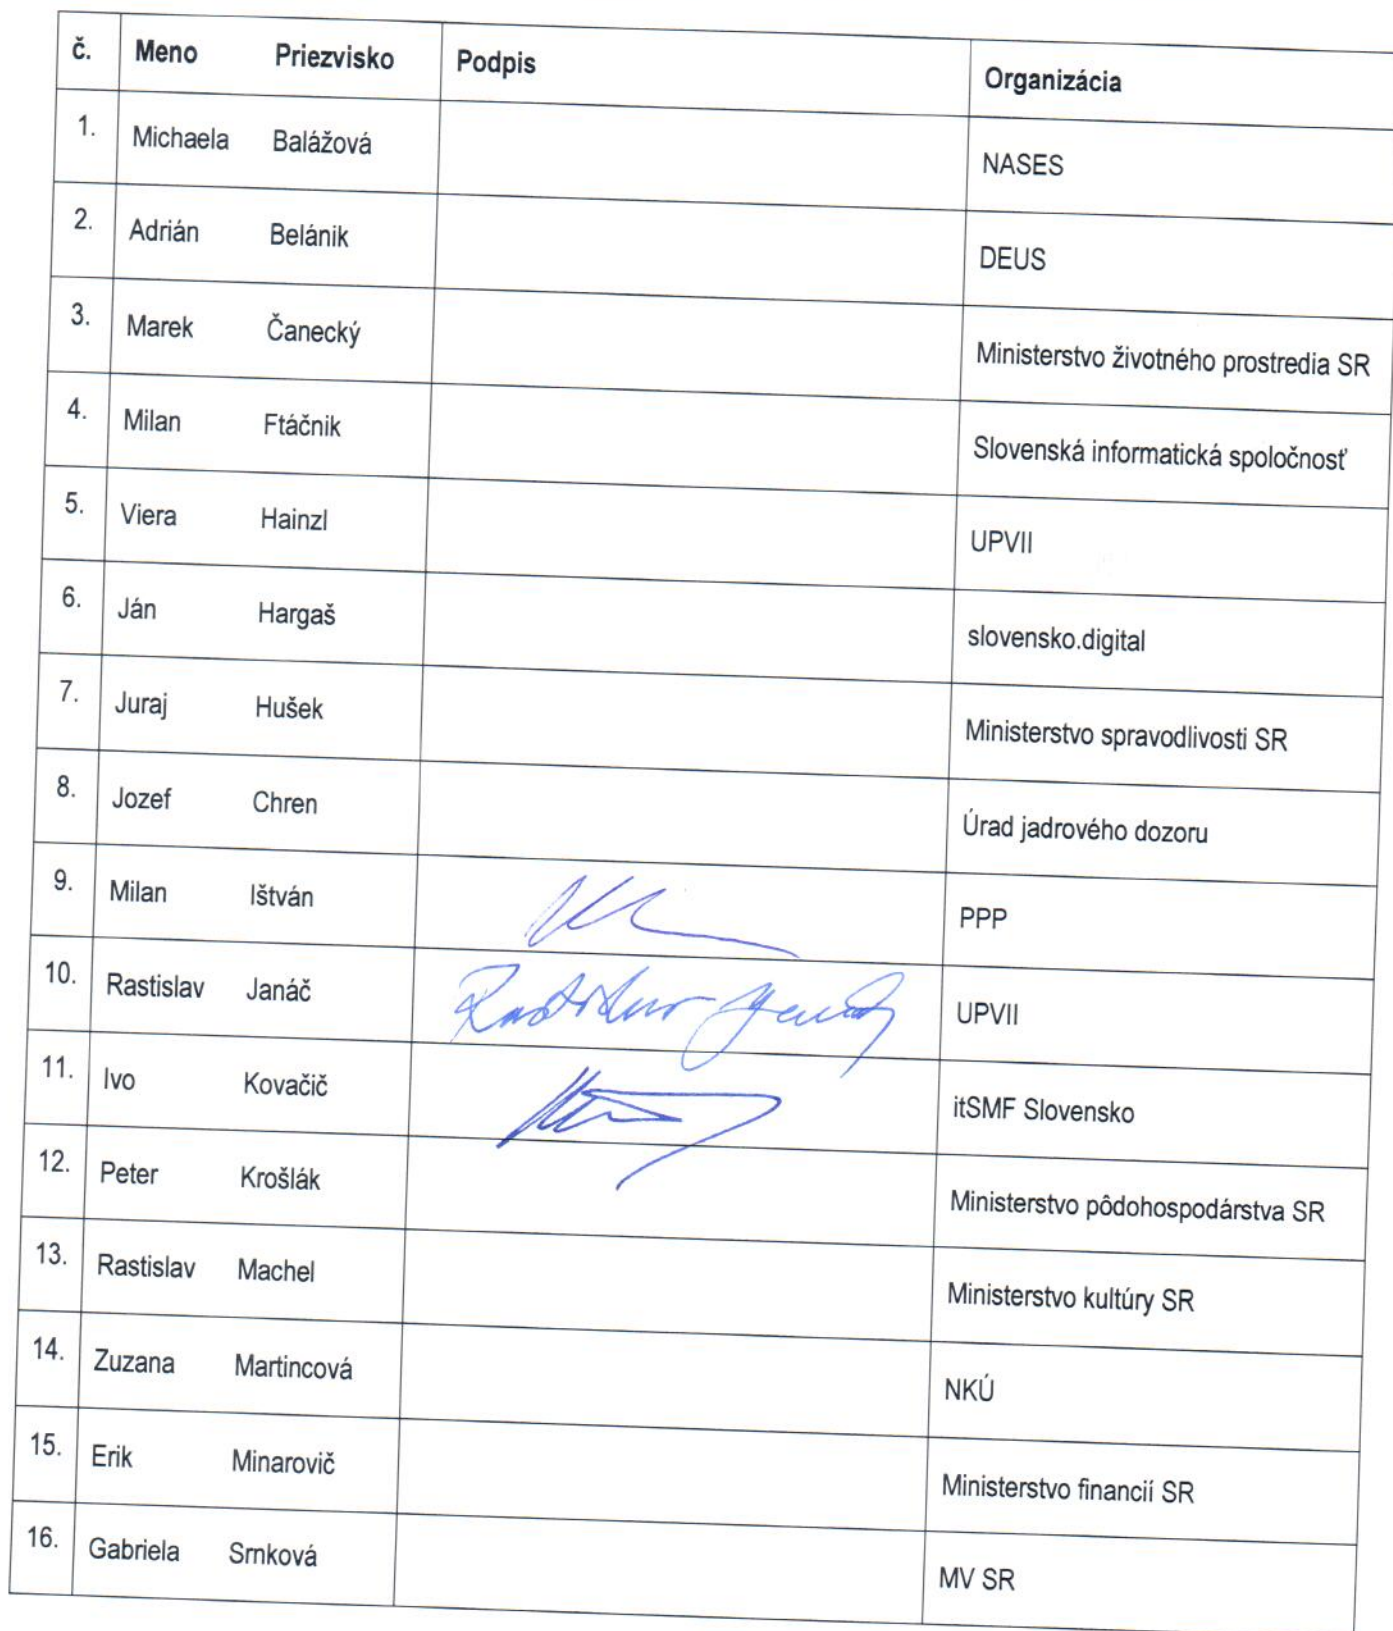 č. Meno Priezvisko Podpis Organizácia
1. Michaela Balážová NASES
2. Adrián Belánik DEUS
3. Marek Čanecký Ministerstvo životného prostredia SR
4. Milan Ftáčnik Slovenská informatická spoločnosť
5. Viera Hainzl UPVII
6. Ján Hargaš slovensko.digital
7. Juraj Hušek Ministerstvo spravodlivosti SR
8. Jozef Chren Úrad jadrového dozoru
9. Milan Ištván PPP
10. Rastislav Janáč UPVII
11. Ivo Kovačič itSMF Slovensko
12. Peter Krošlák Ministerstvo pôdohospodárstva SR
13. Rastislav Machel Ministerstvo kultúry SR
14. Zuzana Martincová NKÚ
15. Erik Minarovič Ministerstvo financií SR
16. Gabriela Srnková MV SR